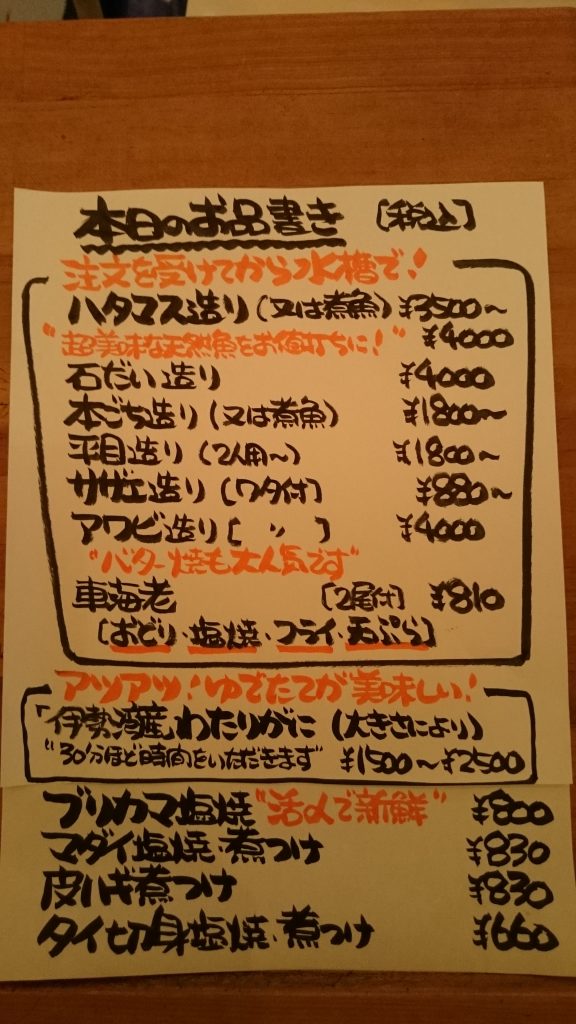 本日のお品書き [税込]
注文を受けてから水槽で!
ハタマス造り(又は煮魚) ¥3500〜
"超美味な天然魚をお値打ちに!" ¥4000
石だい造り ¥4000
本ごち造り(又は煮魚) ¥1800〜
平目造り(2人用〜) ¥1800〜
サザエ造り(ワタ付) ¥880〜
アワビ造り[ 〃 ] ¥4000
"バター焼も大人気です"
車海老 [2尾付] ¥810
[おどり・塩焼・フライ・天ぷら]
アツアツ!ゆでたてが美味しい!
「伊勢湾産わたりがに(大きさにより)
"30分ほど時間をいただきます" ¥1500〜¥2500
ブリカマ塩焼"活〆で新鮮" ¥800
マダイ塩焼・煮つけ ¥830
皮ハギ煮つけ ¥830
タイ切身塩焼・煮つけ ¥660